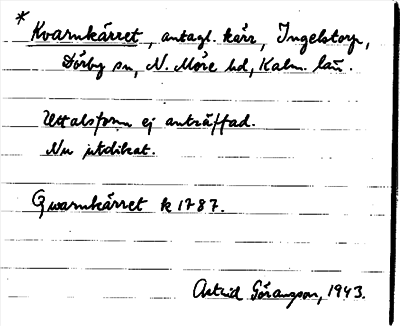 * Kvarnkärret, antagl. kärr, Ingelstorp,
Dörby sn, N. Möre hd, Kalm. län.
Uttalsform ej anträffad.
Nu utdikat.
Qwarnkärret k 1787.
Astrid Göransson, 1943.